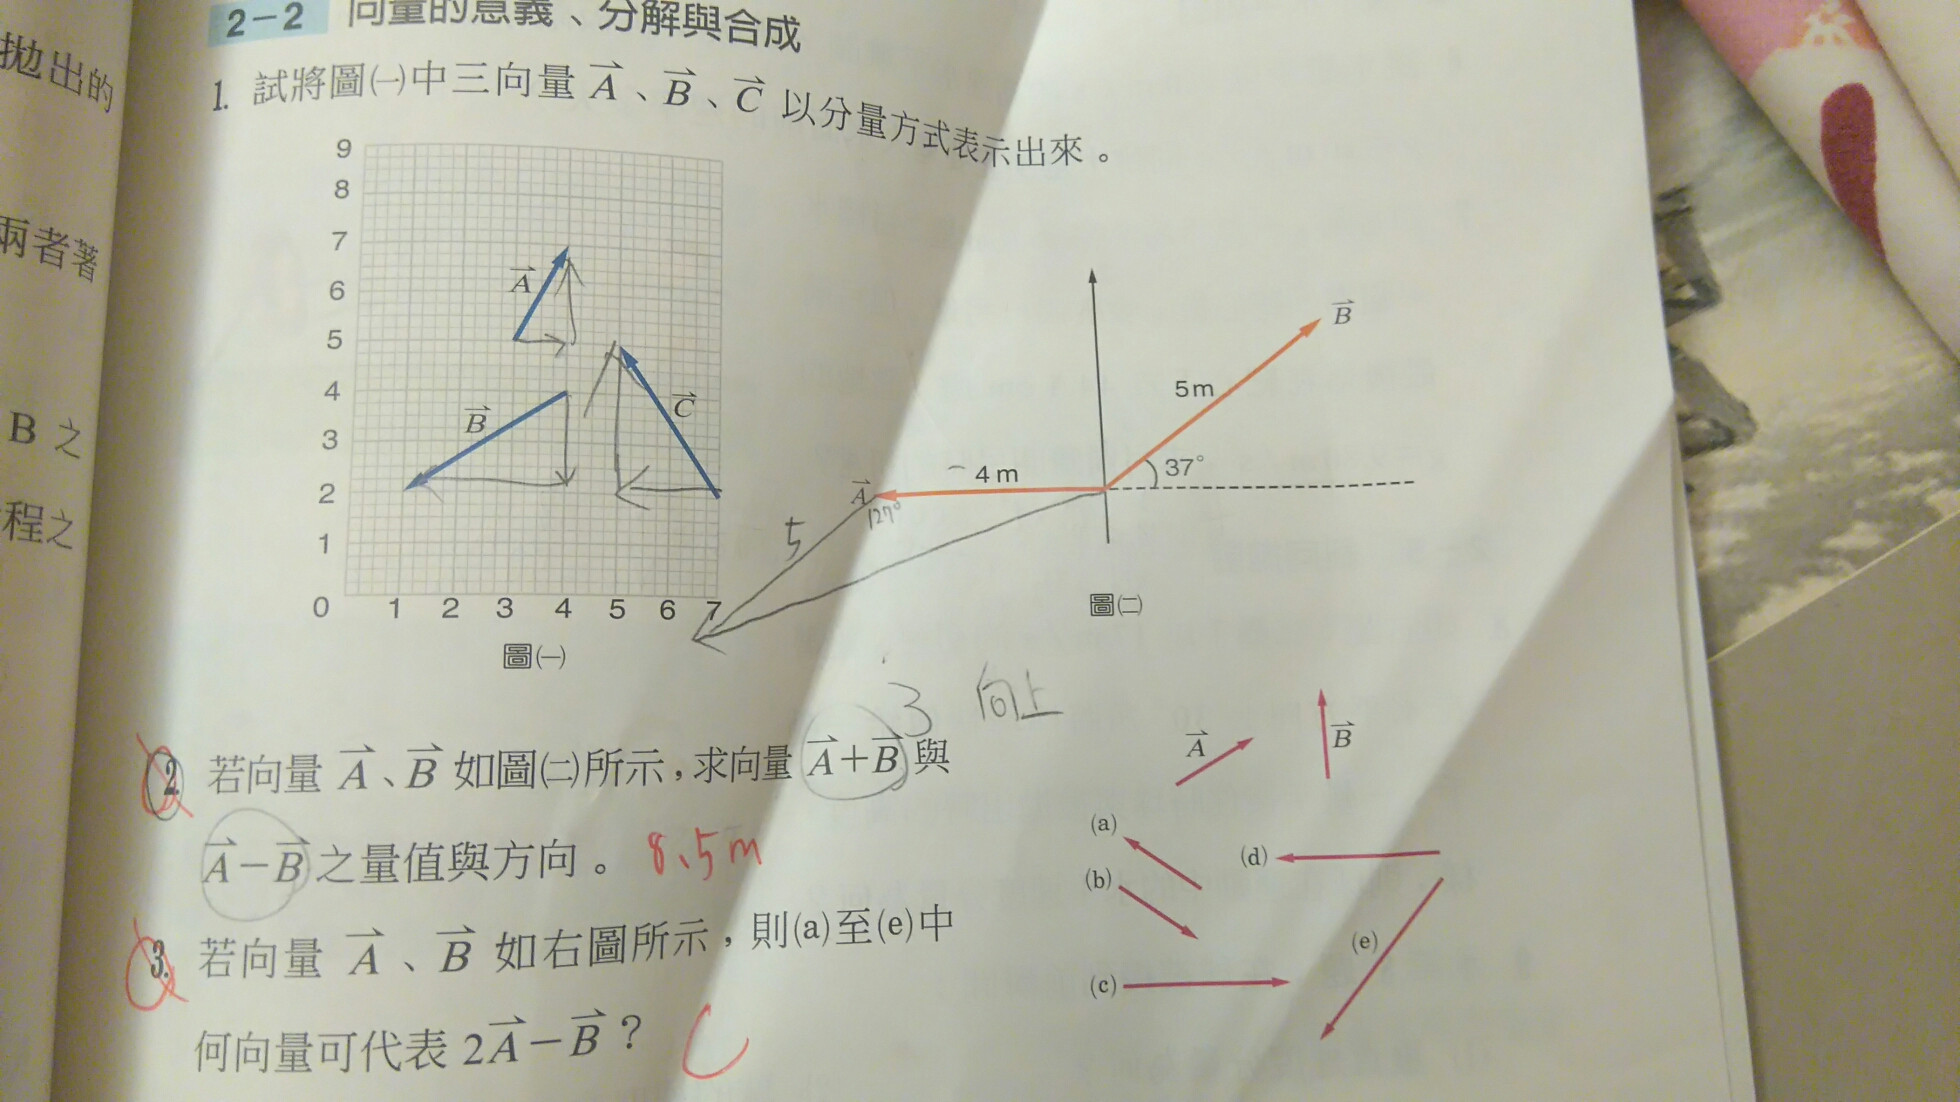 拋出的
兩者著
B 之
程之
2-2 向量的意義、分解與合成
1. 試將圖㈠中三向量 A、B、C 以分量方式表示出來。
9
8
7
6
5
4
3
2
1
0 1 2 3 4 5 6 7
A
B
C
圖㈠
B
5m
37°
4m
A
127°
5
圖㈡
3 向上
2. 若向量 A、B 如圖㈡所示,求向量 A+B 與
A-B 之量值與方向。 8.5m
3. 若向量 A、B 如右圖所示,則(a)至(e)中
何向量可代表 2A-B? C
A
B
(a)
(b)
(c)
(d)
(e)